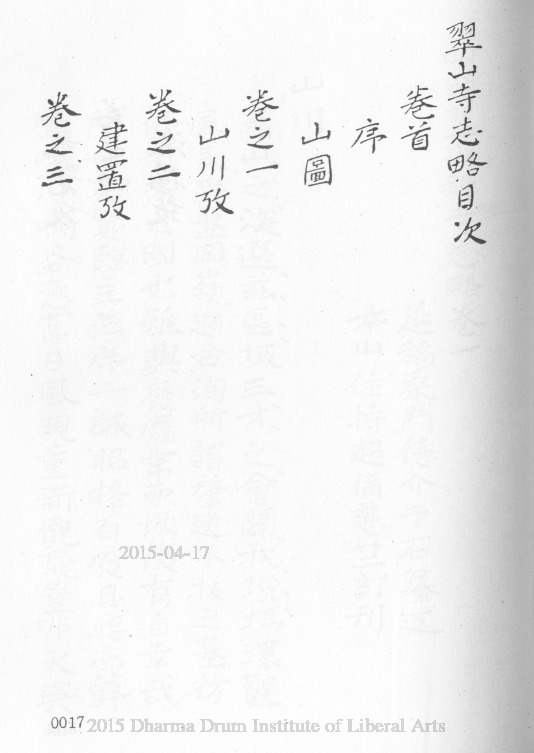 翠山寺志略目次
卷首
序
山圖
卷之一
山川攷
卷之二
建置攷
卷之三
2015-04-17
0017
2015 Dharma Drum Institute of Liberal Arts